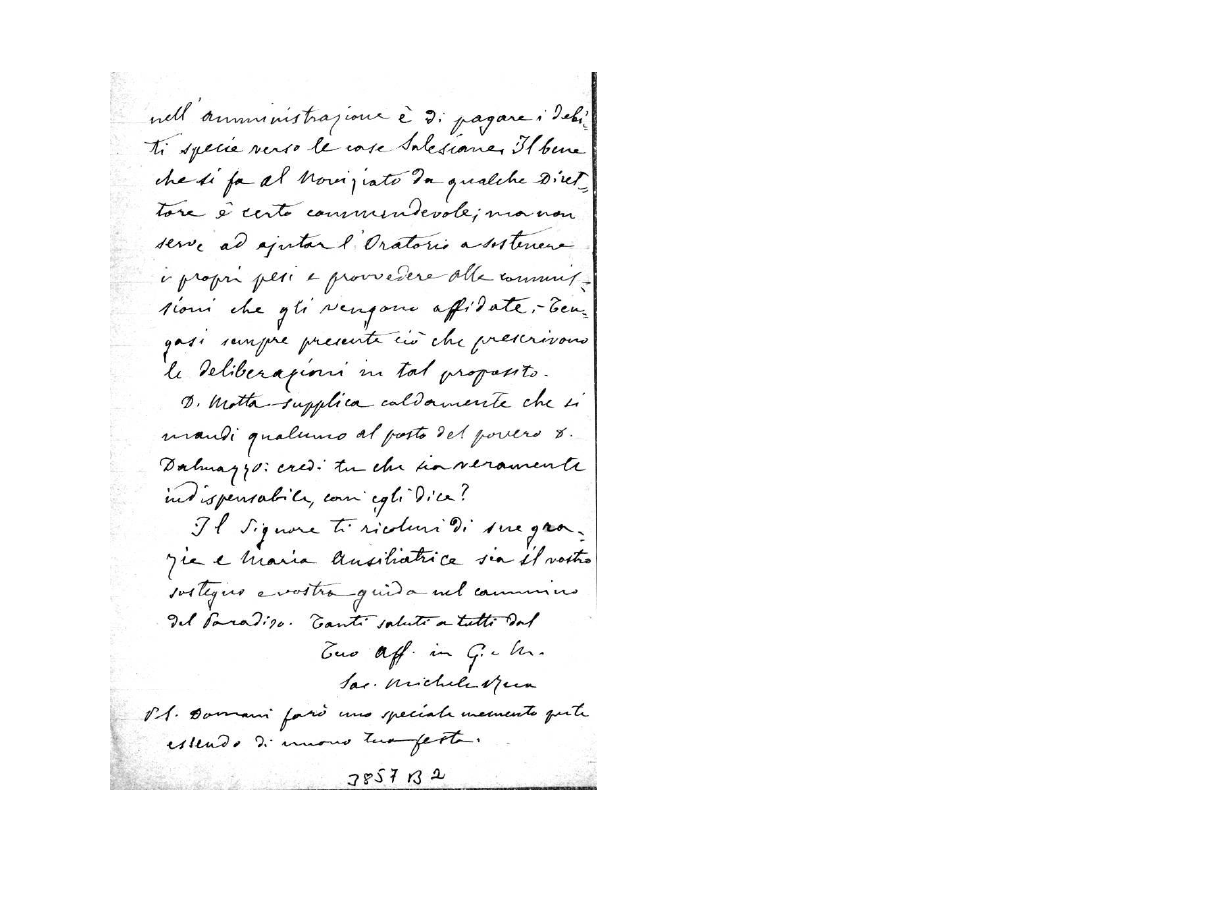 nell'amministrazione è di pagare i debi-
ti specie verso le case Salesiane. Il bene
che si fa al Noviziato da qualche Diret-
tore è certo commendevole; ma non
serve ad ajutar l'Oratorio a sostenere
i propri pesi e provvedere alle commis-
sioni che gli vengono affidate. - Ten-
gasi sempre presente ciò che prescrivono
le deliberazioni in tal proposito.
D. Motta supplica caldamente che si
mandi qualcuno al posto del povero D.
Dalmazzo: credi tu che sia veramente
indispensabile, com'egli dice?
Il Signore ti ricolmi di sue gra-
zie e Maria Ausiliatrice sia il vostro
sostegno e vostra guida nel cammino
del Paradiso. Tanti saluti a tutti dal
Tuo aff. in G. e M.
Sac. Michele Rua
P.S. Domani farò uno speciale memento per te
essendo di nuovo tua festa.
3857 B 2